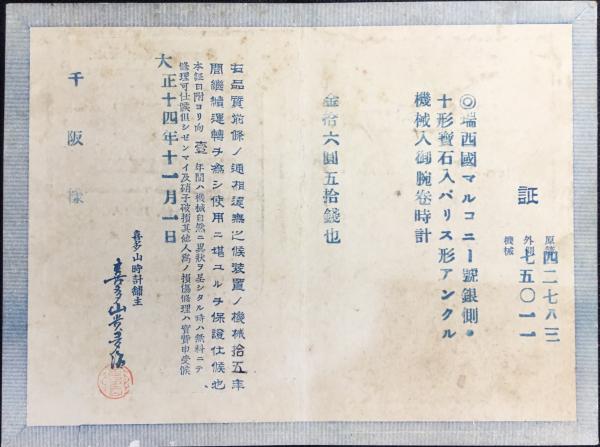 証
原簿 四二七八三
外側 七五〇一一
機械
◎瑞西國マルコニー號銀側。
十形寶石入パリス形アンクル
機械入御腕巻時計
金拾六圓五拾錢也
右品質前條ノ通相違無之候装置ノ機械拾五年
間継續運轉ヲ為シ使用ニ堪ユルヲ保證仕候也
本証日附ヨリ向壹年間ハ機械自然ニ異狀ヲ呈シタル時ハ無料ニテ
修理可仕候但シゼンマイ及硝子破損其他人為ノ損傷修理ハ實費申受候
大正十四年十一月一日
喜多山時計舗主
喜多山
千阪様